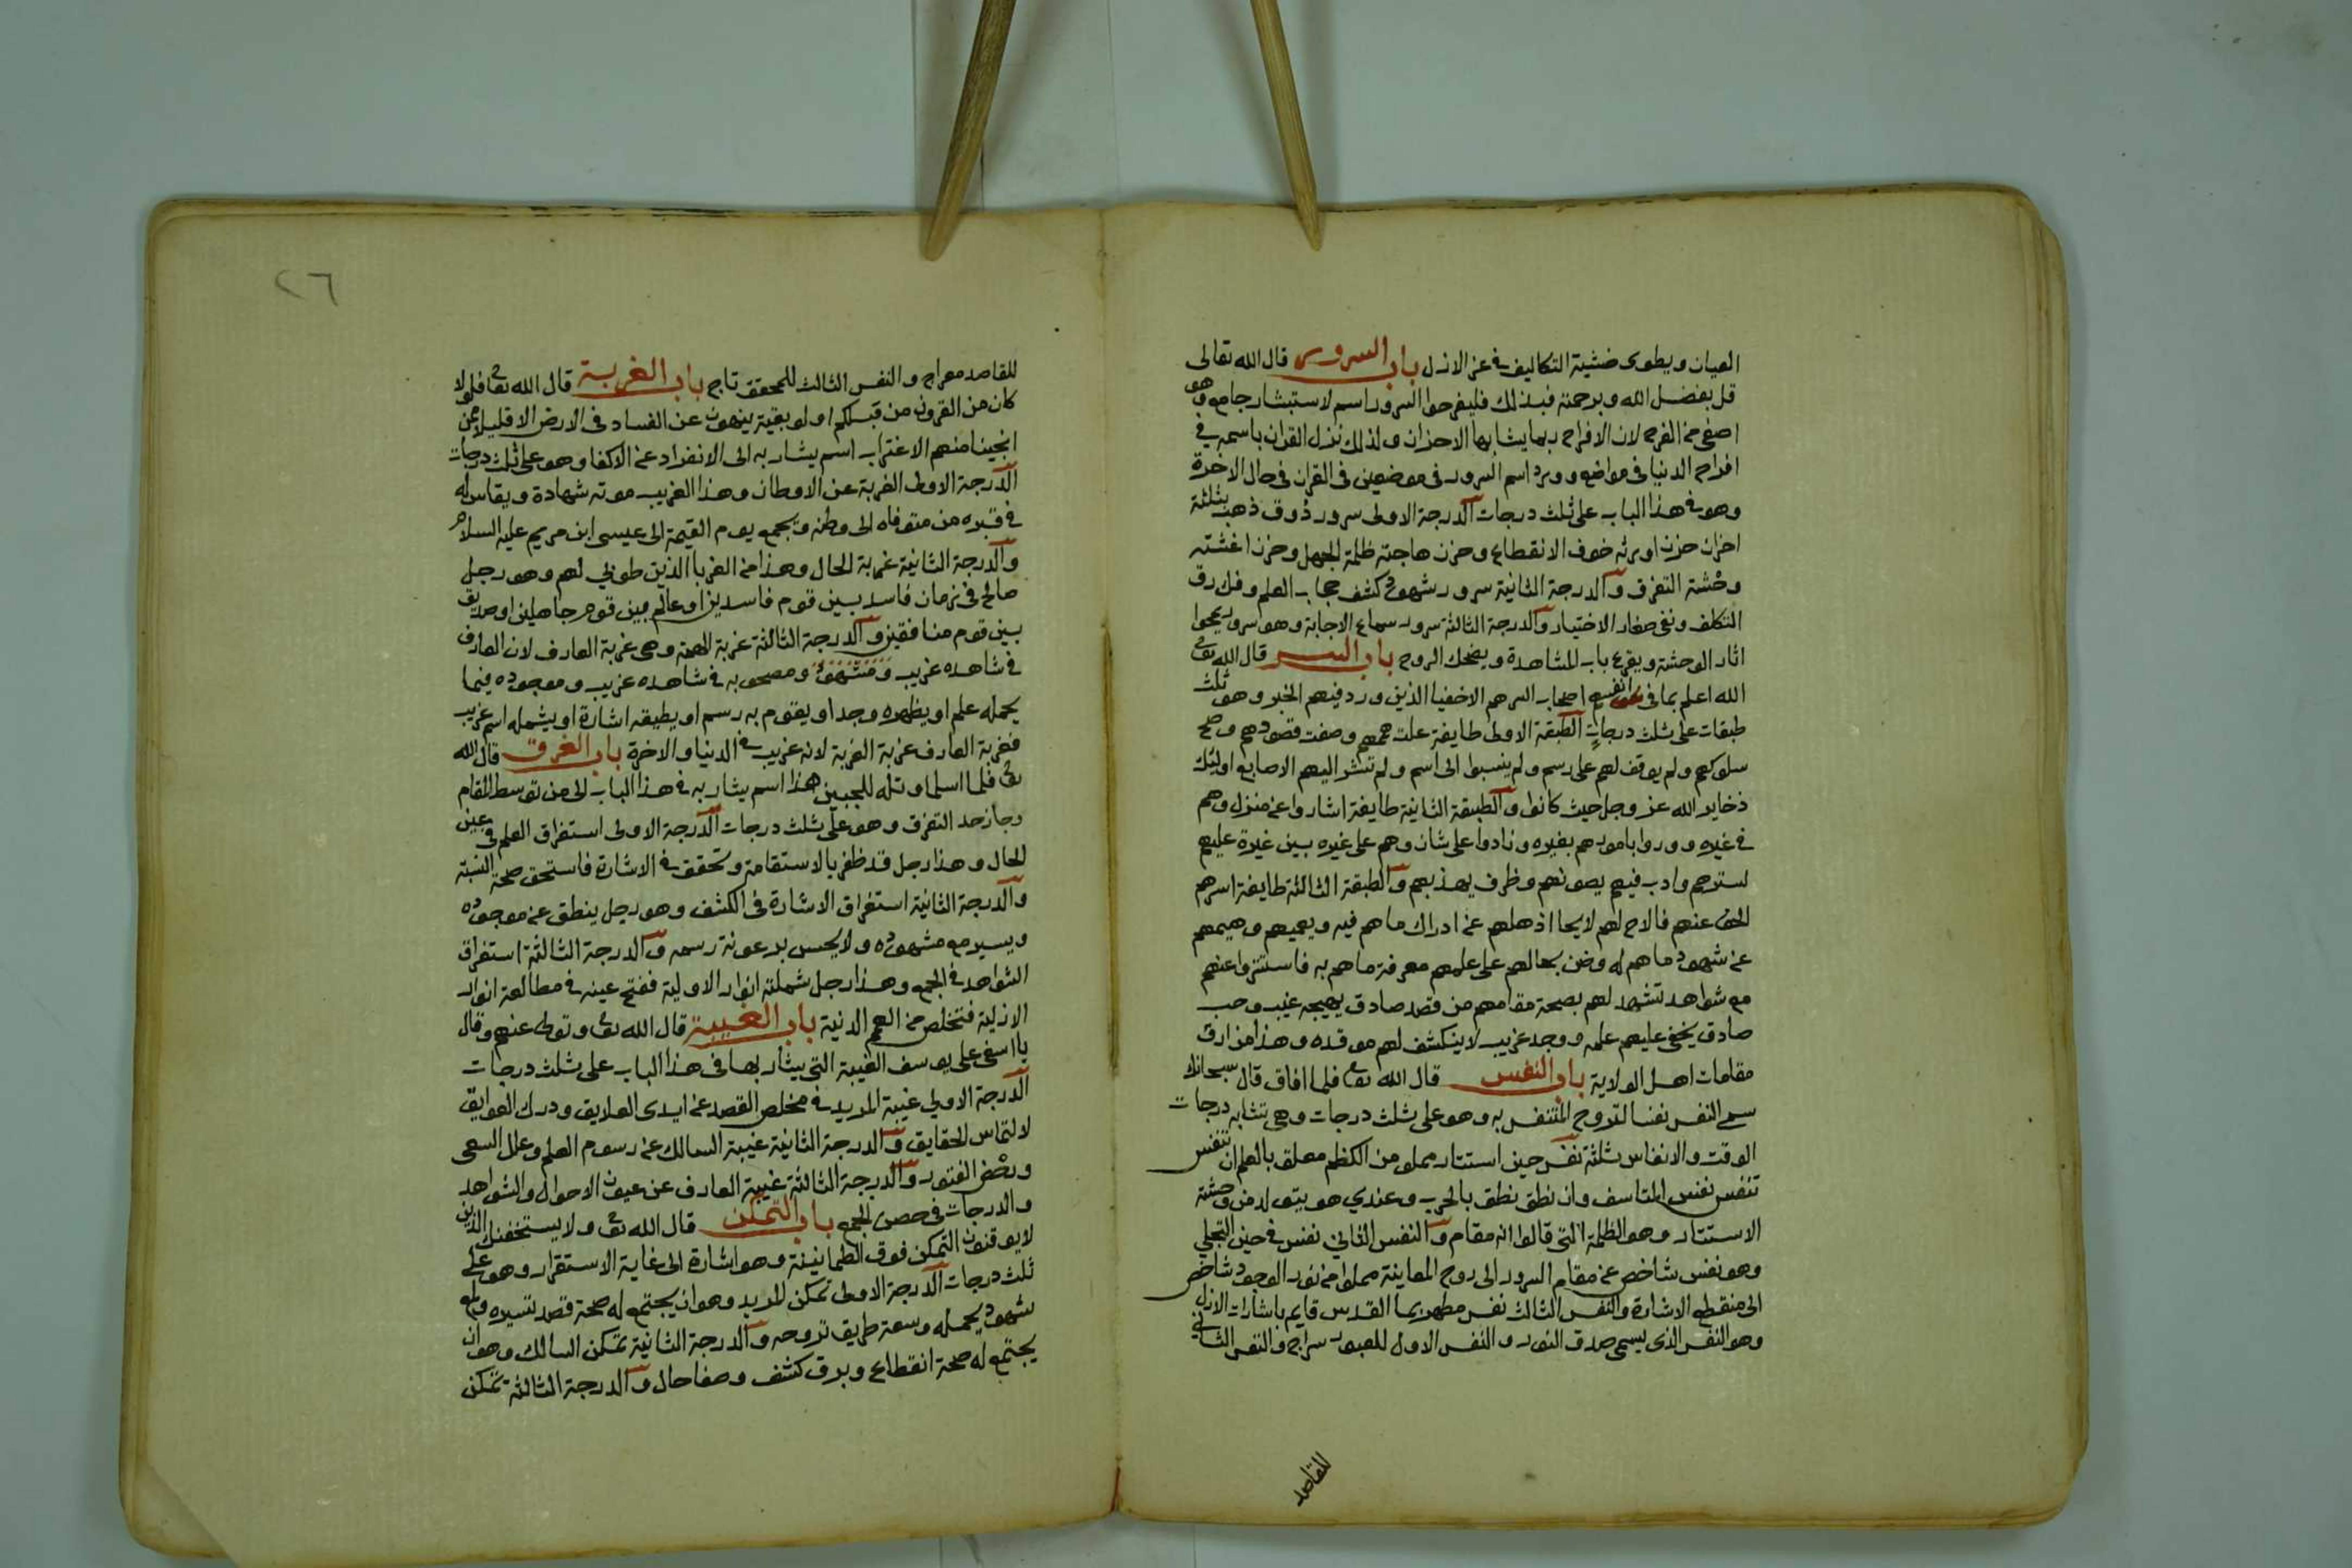 العيان ويطوى خسّة التكاليف فى عز الازل باب السرور قال الله تعالى
قل بفضل الله وبرحمته فبذلك فليفرحوا السرور اسم لاستبشار جامع وهو
اصفى من الفرح لان الافراح ربما يشابها الاحزان ولذلك نزل القران باسمه فى
افراح الدنيا فى مواضع وورد اسم السرور فى موضعين فى القران فى حال الاخرة
وهو فى هذا الباب على ثلث درجات الدرجة الاولى سرور ذوق ذهب بثلثة
احزان حزن اورثه خوف الانقطاع وحزن هاجته ظلمة الجهل وحزن اغشته
وحشة التفرق والدرجة الثانية سرور شهود كشف حجاب العلم وفك رق
التكلف ونفى صغار الاختيار والدرجة الثالثة سرور سماع الاجابة وهو سرور يمحوا
اثار الوحشة ويقرع باب المشاهدة ويضحك الروح باب السر قال الله تعا
الله اعلم بما فى انفسهم اصحاب السر هم الاخفيا الذين ورد فيهم الخبر وهو ثلث
طبقات على ثلث درجات الطبقة الاولى طايفة علت هممهم وصفت قصودهم وصح
سلوكهم ولم يوقف لهم على رسم ولم ينسبوا الى اسم ولم تشر اليهم الاصابع اوليك
ذخاير الله عز وجل حيث كانوا والطبقة الثانية طايفة اشاروا عن منزل وهم
فى غيره ووروا بامور هم بغيره ونادوا على شان وهم على غيره بين غيرة عليهم
لسترهم وادب فيهم يصونهم وظرف يهذبهم والطبقة الثالثة طايفة اسرهم
الحق عنهم فالاح لهم لايحا اذهلهم عن ادراك ما هم فيه ويعميهم وهيمهم
عن شهود ما هم له وضن بحالهم على علمهم معرفة ما هم به فاستتروا عنهم
مع شواهد تشهد لهم بصحة مقامهم من قصد صادق يهيجه غيب وحب
صادق يخفى عليهم علمه ووجد غريب لا ينكشف لهم موقده وهذا من ارق
مقامات اهل الولاية باب النفس قال الله تعا فلما افاق قال سبحانك
سمى النفس نفسا لتروح المتنفس به وهو على ثلث درجات وهى تشابه درجات
الوقت والانفاس ثلثة نفس حين استتار مملو من الكظم معلق بالعلم ان تنفس
تنفس نفس المتاسف وان نطق نطق بالحرب وعندي هو يتولد من وحشة
الاستتار وهو الظلمة التى قالوا انه مقام والنفس الثانى نفس فى حين التجلي
وهو نفس شاخص عن مقام السرور الى روح المعاينة مملوا من نور الوجود شاخص
الى منقطع الاشارة والنفس الثالث نفس مطهر بما القدس قايم باشارات الازل
وهو النفس الذى يسمى صدق النور والنفس الاول للعيون سراج والنفس الثانى
للقاصد
٢٦
للقاصد معراج والنفس الثالث للمحقق تاج باب الغربة قال الله تعا فلولا
كان من القرون من قبلكم اولو بقية ينهون عن الفساد فى الارض الا قليلا ممن
انجينا منهم الاغتراب اسم يشار به الى الانفراد عن الاكفا وهو على ثلث درجات
الدرجة الاولى الغربة عن الاوطان وهذا الغريب موته شهادة ويقاس له
فى قبره من متوفاه الى وطنه ويجمع يوم القيمة الى عيسى ابن مريم عليه السلام
والدرجة الثانية غربة الحال وهذا من الغربا الذين طوبى لهم وهو رجل
صالح فى زمان فاسد بين قوم فاسدين او عالم بين قوم جاهلين او صديق
بين قوم منافقين والدرجة الثالثة غربة الهمة وهى غربة العارف لان العارف
فى شاهده غريب ومصحوبه فى شاهده غريب وموجوده فيما
يحمله علم او يظهره وجد او يقوم به رسم او يطيقه اشارة او يشمله اسم غريب
فغربة العارف غربة الغربة لانه غريب فى الدنيا والاخرة باب الغرق قال الله
تعا فلما اسلما وتله للجبين هذا اسم يشار به فى هذا الباب الى من توسط المقام
وجاز حد التفرق وهو على ثلث درجات الدرجة الاولى استغراق العلم فى عين
الحال وهذا رجل قد ظفر بالاستقامة وتحقق فى الاشارة فاستحق صحة النسبة
والدرجة الثانية استغراق الاشارة فى الكشف وهو رجل ينطق عن موجوده
ويسير مع مشهوده ولا يحس برعونة رسمه والدرجة الثالثة استغراق
الشواهد فى الجمع وهذا رجل شملته انوار الاولية ففتح عينه فى مطالعة انوار
الازلية فتخلص من الهمم الدنية باب الغيبة قال الله تعا وتولى عنهم وقال
يا اسفى على يوسف الغيبة التى يشار بها فى هذا الباب على ثلث درجات
الدرجة الاولى غيبة المريد فى مخلص القصد عن ايدى العلايق ودرك العوايق
لالتماس الحقايق والدرجة الثانية غيبة السالك عن رسوم العلم وعلل السعى
ورخص الفتور والدرجة الثالثة غيبة العارف عن عيون الاحوال والشواهد
والدرجات فى حصن الجمع باب التمكن قال الله تعا ولا يستخفنك الذين
لا يوقنون التمكن فوق الطمانينة وهو اشارة الى غاية الاستقرار وهو على
ثلث درجات الدرجة الاولى تمكن المريد وهو ان يجتمع له صحة قصد تسيره ولمع
شهود يحمله وسعة طريق تروحه والدرجة الثانية تمكن السالك وهو ان
يجتمع له صحة انقطاع وبرق كشف وصفا حال والدرجة الثالثة تمكن